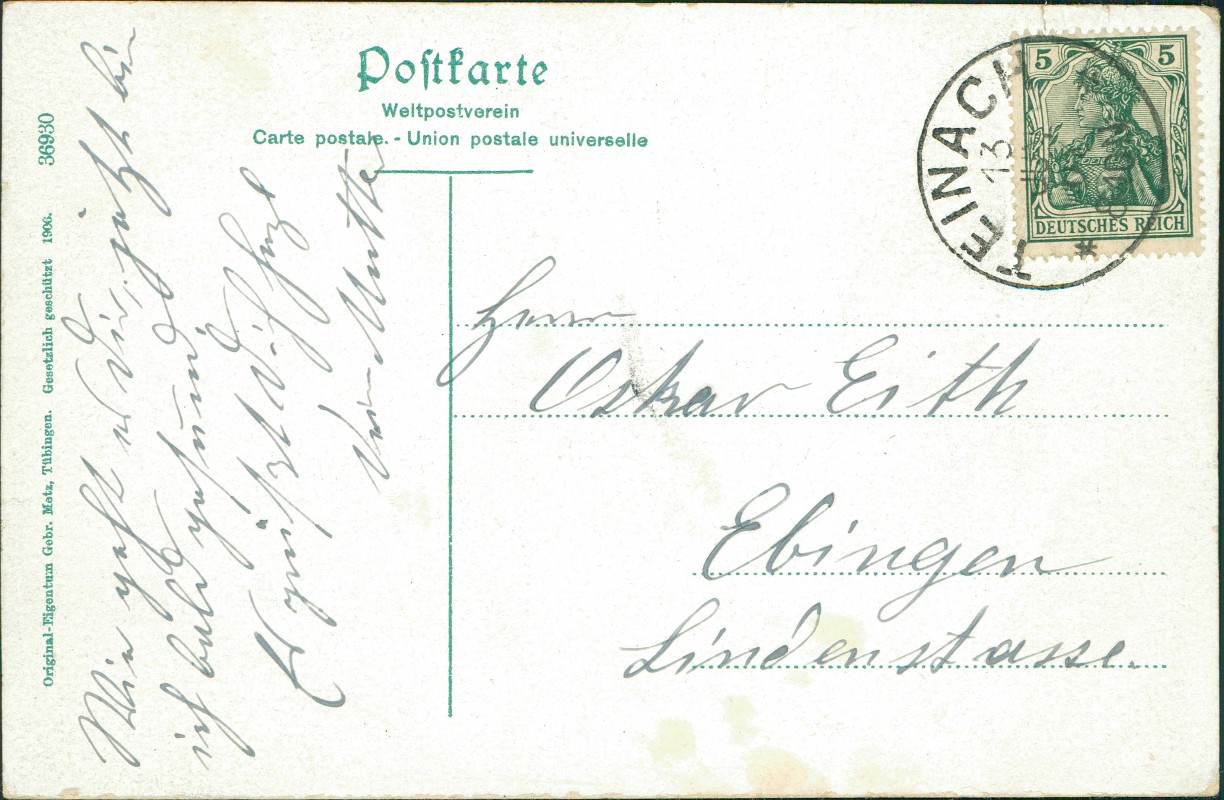 Postkarte
Weltpostverein
Carte postale. - Union postale universelle
36930
Original-Eigentum Gebr. Metz, Tübingen. Gesetzlich geschützt 1906.
5 5
DEUTSCHES REICH
TEINACH
13
Wie geht es Dir, jetzt bin
ich bald gesund
Es grüßt Dich herzl
Deine Mutter
Herrn
Oskar Eith
Ebingen
Lindenstasse.